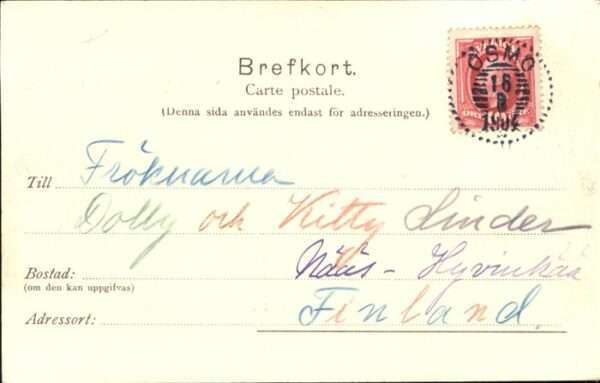 Brefkort.
Carte postale.
(Denna sida användes endast för adresseringen.)
ÖSMO
16
8
1904
Till Fröknarna
Dolly och Kitty Linder
Bostad: Nääs - Hyvinkää
(om den kan uppgifvas)
Adressort: Finland.